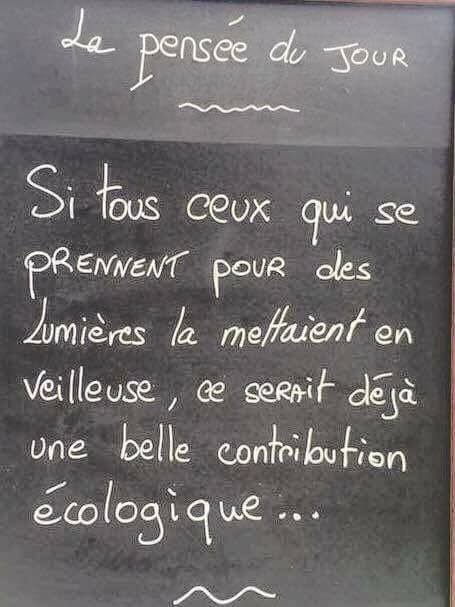 La pensée du JOUR
Si tous ceux qui se
PRENNENT pour des
Lumières la mettaient en
veilleuse, ce serait déjà
une belle contribution
écologique...